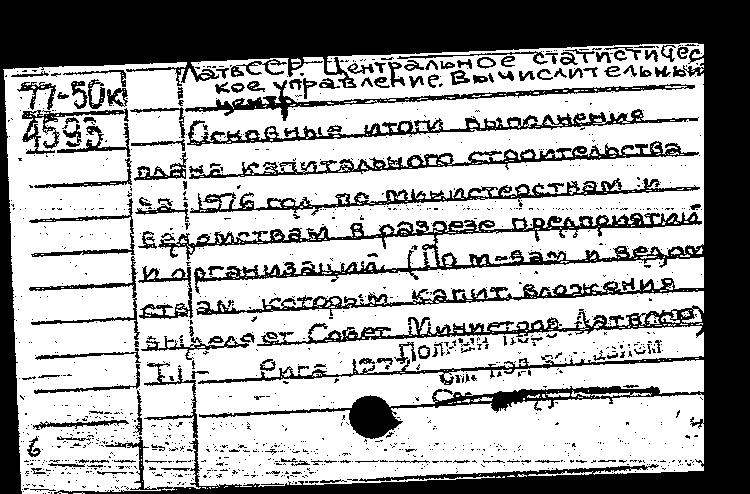 ЛатвССР. Центральное статистичес
77-50к кое управление. Вычислительный
центр
4593 Основные итоги выполнения
плана капитального строительства
за 1976 год, по министерствам и
ведомствам в разрезе предприятий
и организаций. (По м-вам и ведом
ствам, которым капит. вложения
выделяет Совет Министров ЛатвССР)
Т.1- Рига, 1977.
Полный
см. под заглавием
См.
6